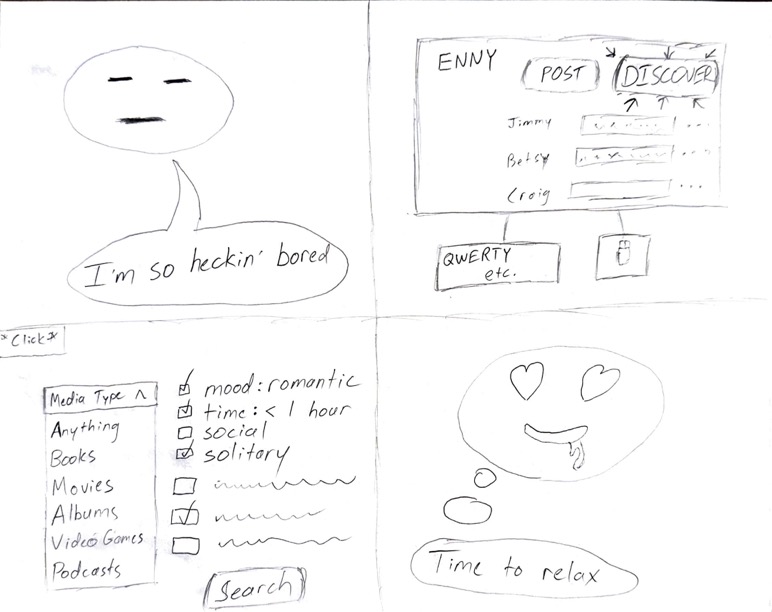 I'm so heckin' bored
ENNY
POST
DISCOVER
Jimmy
Betsy
Craig
QWERTY
etc.
*Click*
Media Type ^
Anything
Books
Movies
Albums
Video Games
Podcasts
mood: romantic
time: < 1 hour
social
solitary
Search
Time to relax